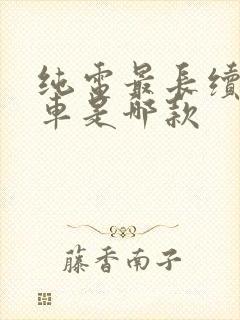 纯电最长续
车是哪款
藤香南子